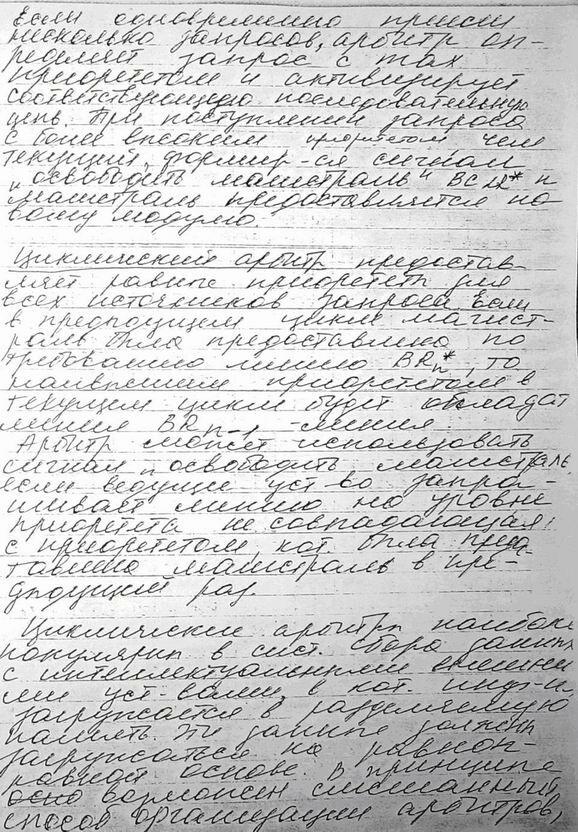 Если одновременно пришли
несколько запросов, арбитр оп-
ределяет запрос с max
приоритетом и активизирует
соответствующую последовательную
цепь. При поступлении запроса
с более высоким приоритетом чем
текущий, формир-ся сигнал
"освободить магистраль" BCLR* и
магистраль предоставляется но-
вому модулю.
Циклический арбитр предостав
ляет равные приоритеты для
всех источников запроса. Если
в предыдущем цикле магист-
раль была предоставлена по
требованию линию BRn*, то
наивысшим приоритетом в
текущем цикле будет обладат
линия BRn-1 -линия.
Арбитр может использовать
сигнал "освободить магистраль,
если ведущее уст-во запра-
шивает линию на уровне
приоритета не совпадающая
с приоритетом, кот. была предо
тавлена магистраль в пре-
дыдущий раз.
Циклические арбитры наиболе
популярны в сист. сбора данных
с интеллектуальными внешни
ми уст-вами, в кот. инф-я
загружается в разделяемую
память. Эти данные должны
загружаться на равноп-
равной основе. В принципе
возможен смешанный
способ организации арбитров,